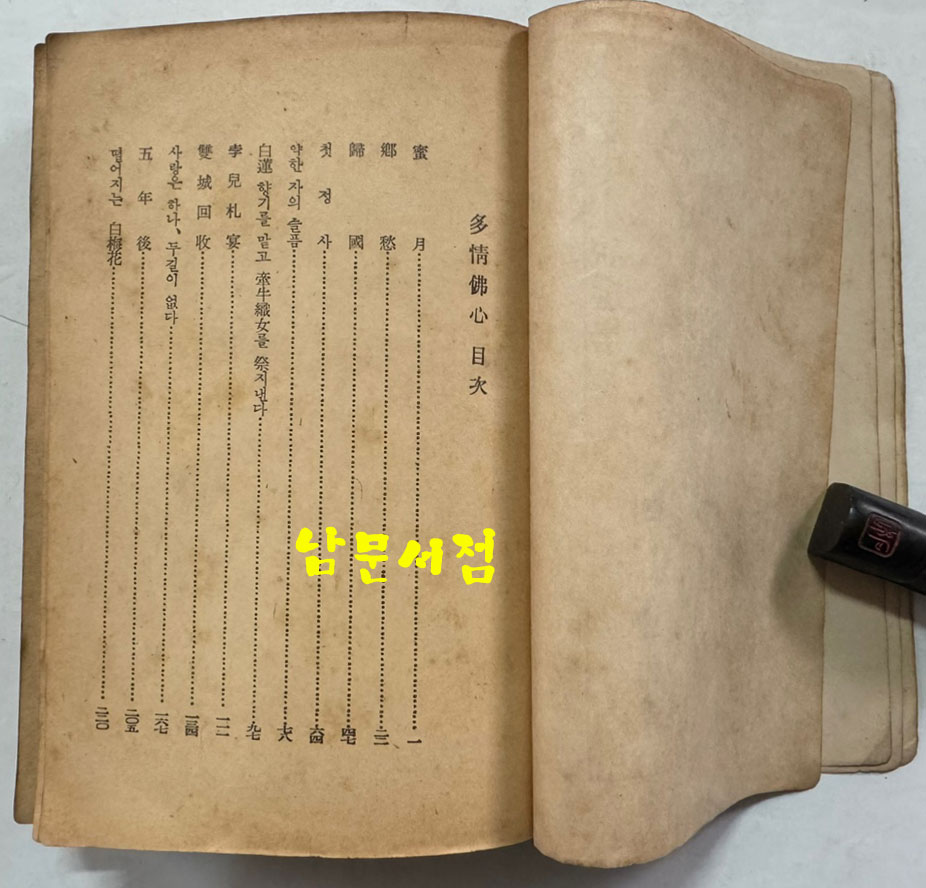 多情佛心 目次
蜜月 一
鄕愁 二二
歸國 四七
첫정사 六四
약한 자의 슬픔 七六
白蓮 향기를 맡고 牽牛織女를 祭지낸다 九七
孛兒札宴 一一二
雙城回收 一三四
사랑은 하나、두길이 없다 一六七
五年後 二〇五
떨어지는 白梅花
남문서점